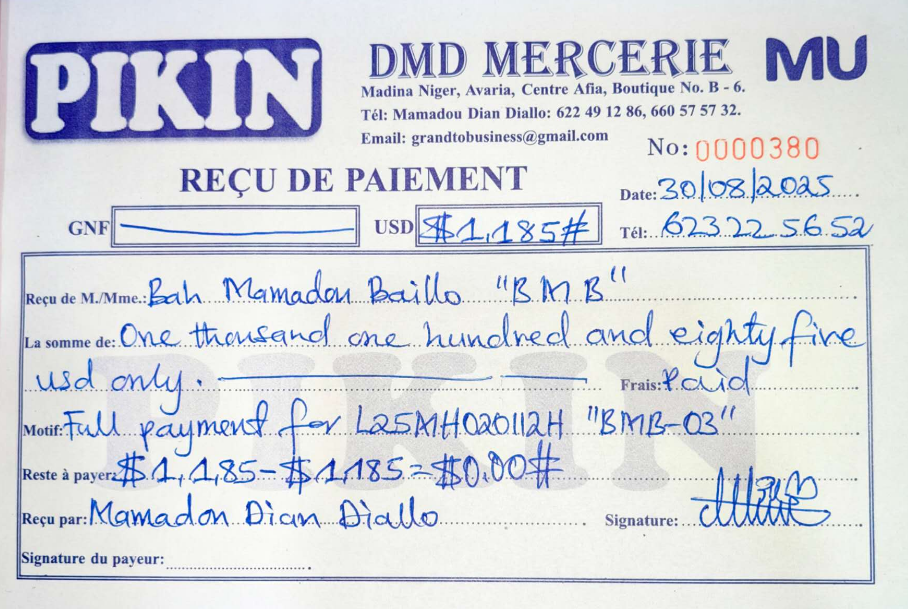 PIKIN
DMD MERCERIE
MU
Madina Niger, Avaria, Centre Afia, Boutique No. B - 6.
Tél: Mamadou Dian Diallo: 622 49 12 86, 660 57 57 32.
Email: grandtobusiness@gmail.com
No: 0000380
REÇU DE PAIEMENT
Date: 30/08/2025
GNF USD $1,185#
Tél: 623 22 56 52
Reçu de M./Mme.: Bah Mamadou Baillo "BMB"
La somme de: One thousand one hundred and eighty five
usd only. Frais: Paid
Motif: Full payment for L25MH020112H "BMB-03"
Reste à payer: $1,185-$1,185=$0.00#
Reçu par: Mamadou Dian Diallo Signature:
Signature du payeur:
PIKIN